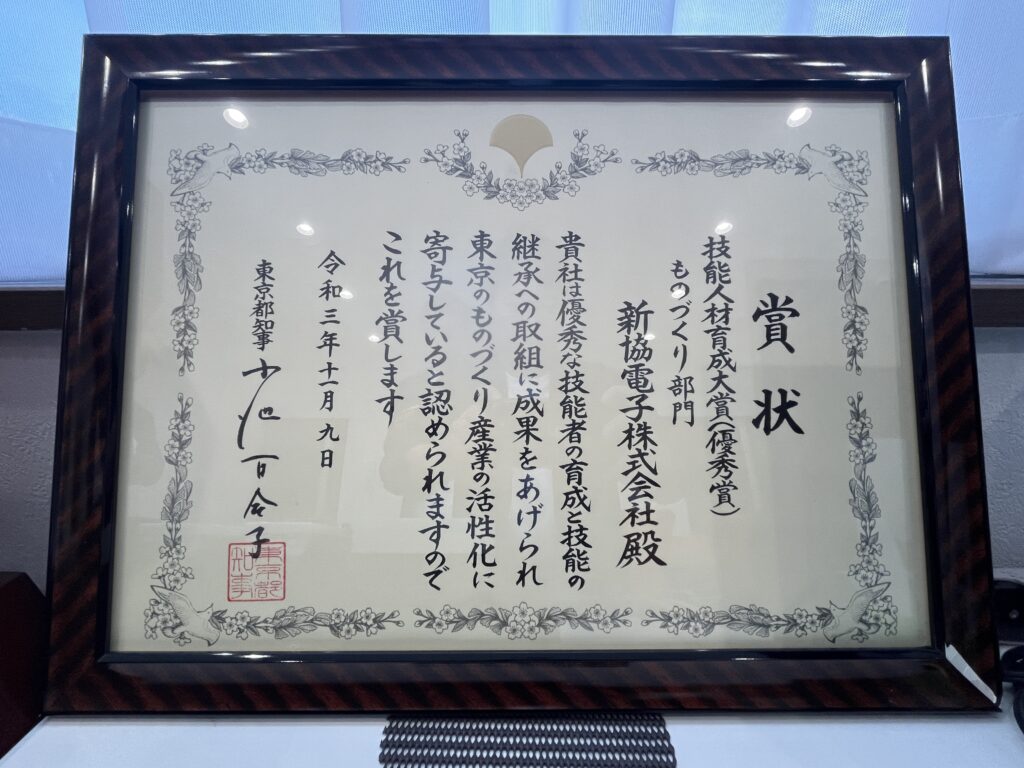 賞状
技能人材育成大賞(優秀賞)
ものづくり部門
新協電子株式会社殿
貴社は優秀な技能者の育成と技能の
継承への取組に成果をあげられ
東京のものづくり産業の活性化に
寄与していると認められますので
これを賞します
令和三年十一月九日
東京都知事 小池百合子
東京都
知事